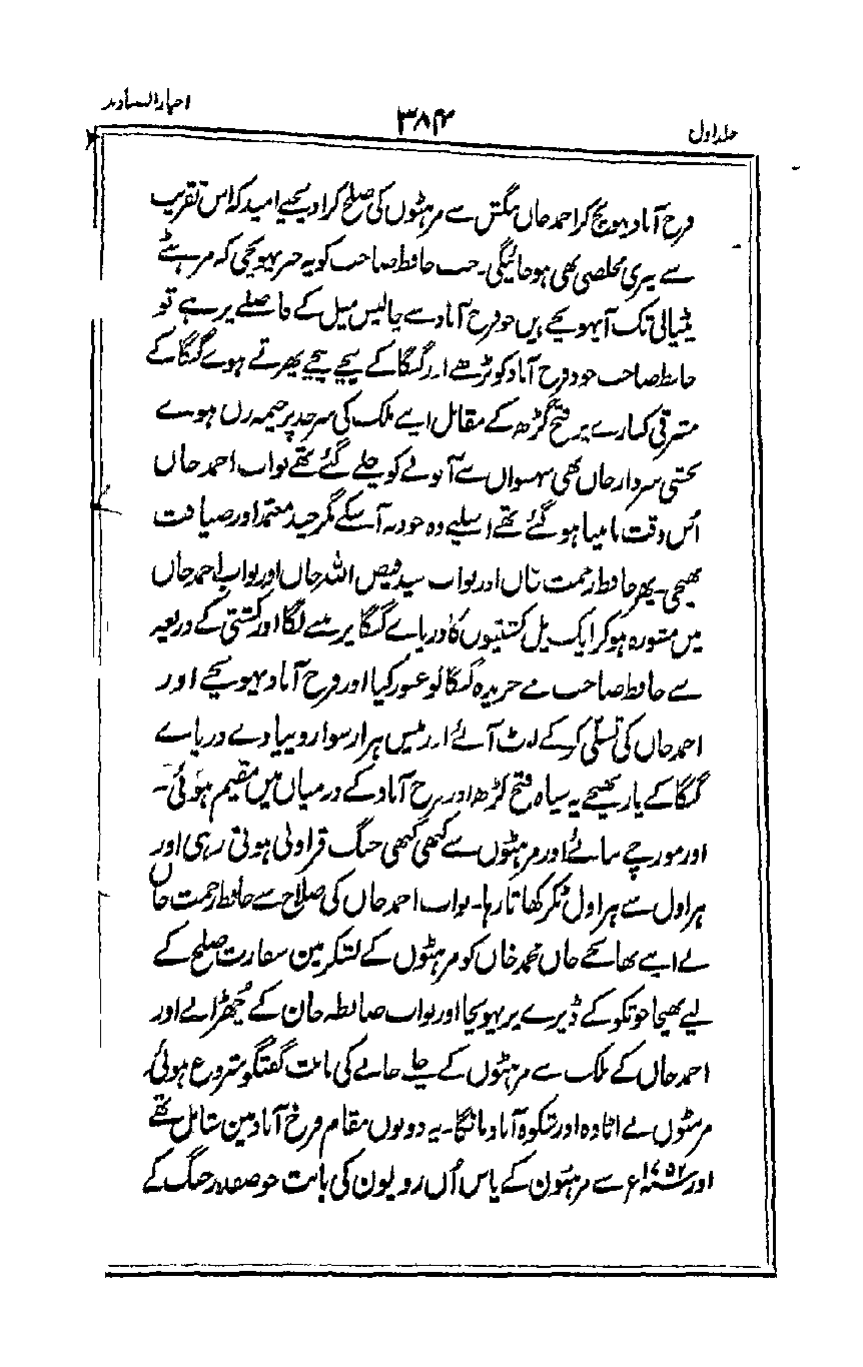 اخبار الصنادید
۳۸۴
جلد اول
فرخ آباد پہونچکر احمد خاں بنگش سے مرہٹوں کی صلح کرا دیجیے امید کہ اس تقریب
سے میری مخلصی بھی ہو جائیگی۔ جب حافظ صاحب کو یہ خبر پہونچی کہ مرہٹے
پٹیالی تک آپہونچے ہیں جو فرخ آباد سے چالیس میل کے فاصلے پر ہے تو
حافظ صاحب خود فرخ آباد کو بڑھے اور گنگا کے پیچھے پیچھے پھرتے ہوے گنگا کے
مشرقی کنارے پر فتح گڑھ کے مقابل اپنے ملک کی سرحد پر خیمہ زن ہوے
بخشی سردار خاں بھی سہسواں سے آنولے کو چلے گئے تھے نواب احمد خاں
اُس وقت نابینا ہو گئے تھے اسلیے وہ خود نہ آسکے مگر چند معتمد اور ضیافت
بھیجی۔ پھر حافظ رحمت خاں اور نواب سید فیض اللہ خاں اور نواب احمد خاں
میں مشورہ ہو کر ایک پل کشتیوں کا دریاے گنگا پر بننے لگا اور کشتی کے ذریعہ
سے حافظ صاحب نے جریدہ گنگا کو عبور کیا اور فرخ آباد پہونچے اور
احمد خاں کی تسلی کر کے لوٹ آئے اور تیس ہزار سوار و پیادے دریاے
گنگا کے پار بھیجے یہ سپاہ فتح گڑھ اور فرخ آباد کے درمیاں میں مقیم ہوئی۔
اور مورچے بنائے اور مرہٹوں سے کبھی کبھی جنگ قراولی ہوتی رہی اور
ہراول سے ہراول ٹکر کھاتا رہا۔ نواب احمد خاں کی صلاح سے حافظ رحمت خاں
نے اپنے بھانجے خاں محمد خاں کو مرہٹوں کے لشکر مین سفارت صلح کے
لیے بھیجا جو تکو کے ڈیرے پر پہونچا اور نواب ضابطہ خان کے چُھڑانے اور
احمد خاں کے ملک سے مرہٹوں کے چلے جانے کی بابت گفتگو شروع ہوئی
مرہٹوں نے اٹاوہ اور شکوہ آباد مانگا۔ یہ دونوں مقام فرخ آباد مین شامل تھے
اور ۱۷۵۲ء سے مرہٹون کے پاس اُن روپیون کی بابت جو صفدر جنگ کے